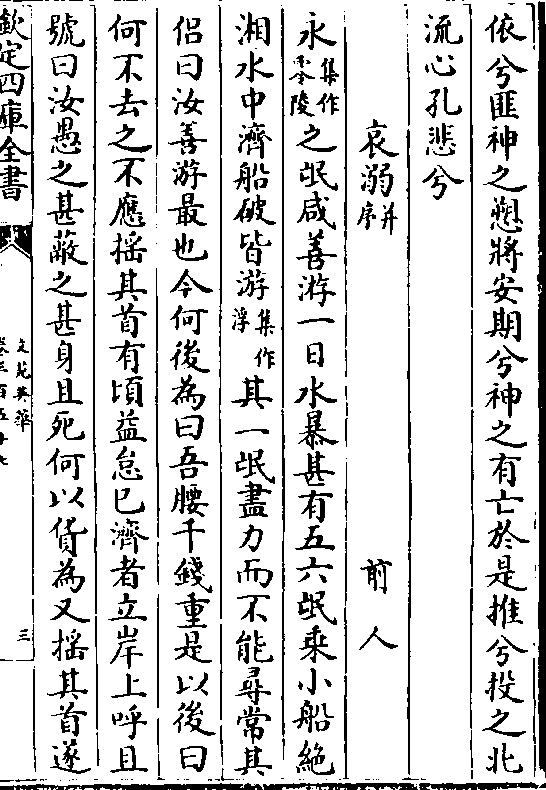 依兮匪神之愬將安期兮神之有亡於是推兮投之北
流心孔悲兮
哀溺并序 前人
永集作零陵之氓咸善游一日水暴甚有五六氓乘小船絶
湘水中濟船破皆游集作浮其一氓盡力而不能尋常其
侶曰汝善游最也今何後為曰吾腰千錢重是以後曰
何不去之不應揺其首有頃益怠已濟者立岸上呼且
號曰汝愚之甚蔽之甚身且死何以貨為又揺其首遂
欽定四庫全書
文苑英華
卷三百五十七
三